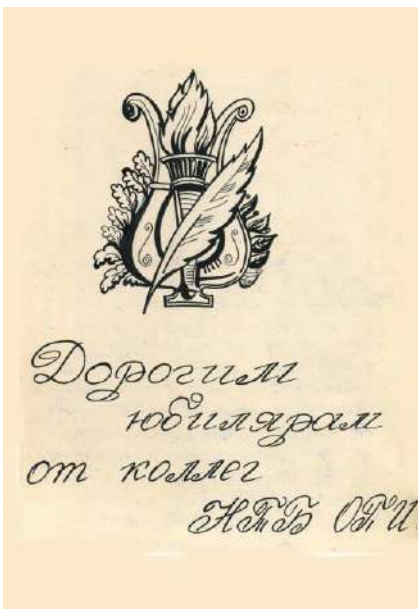 Дорогим
юбилярам
от коллег
НТБ ОПИ